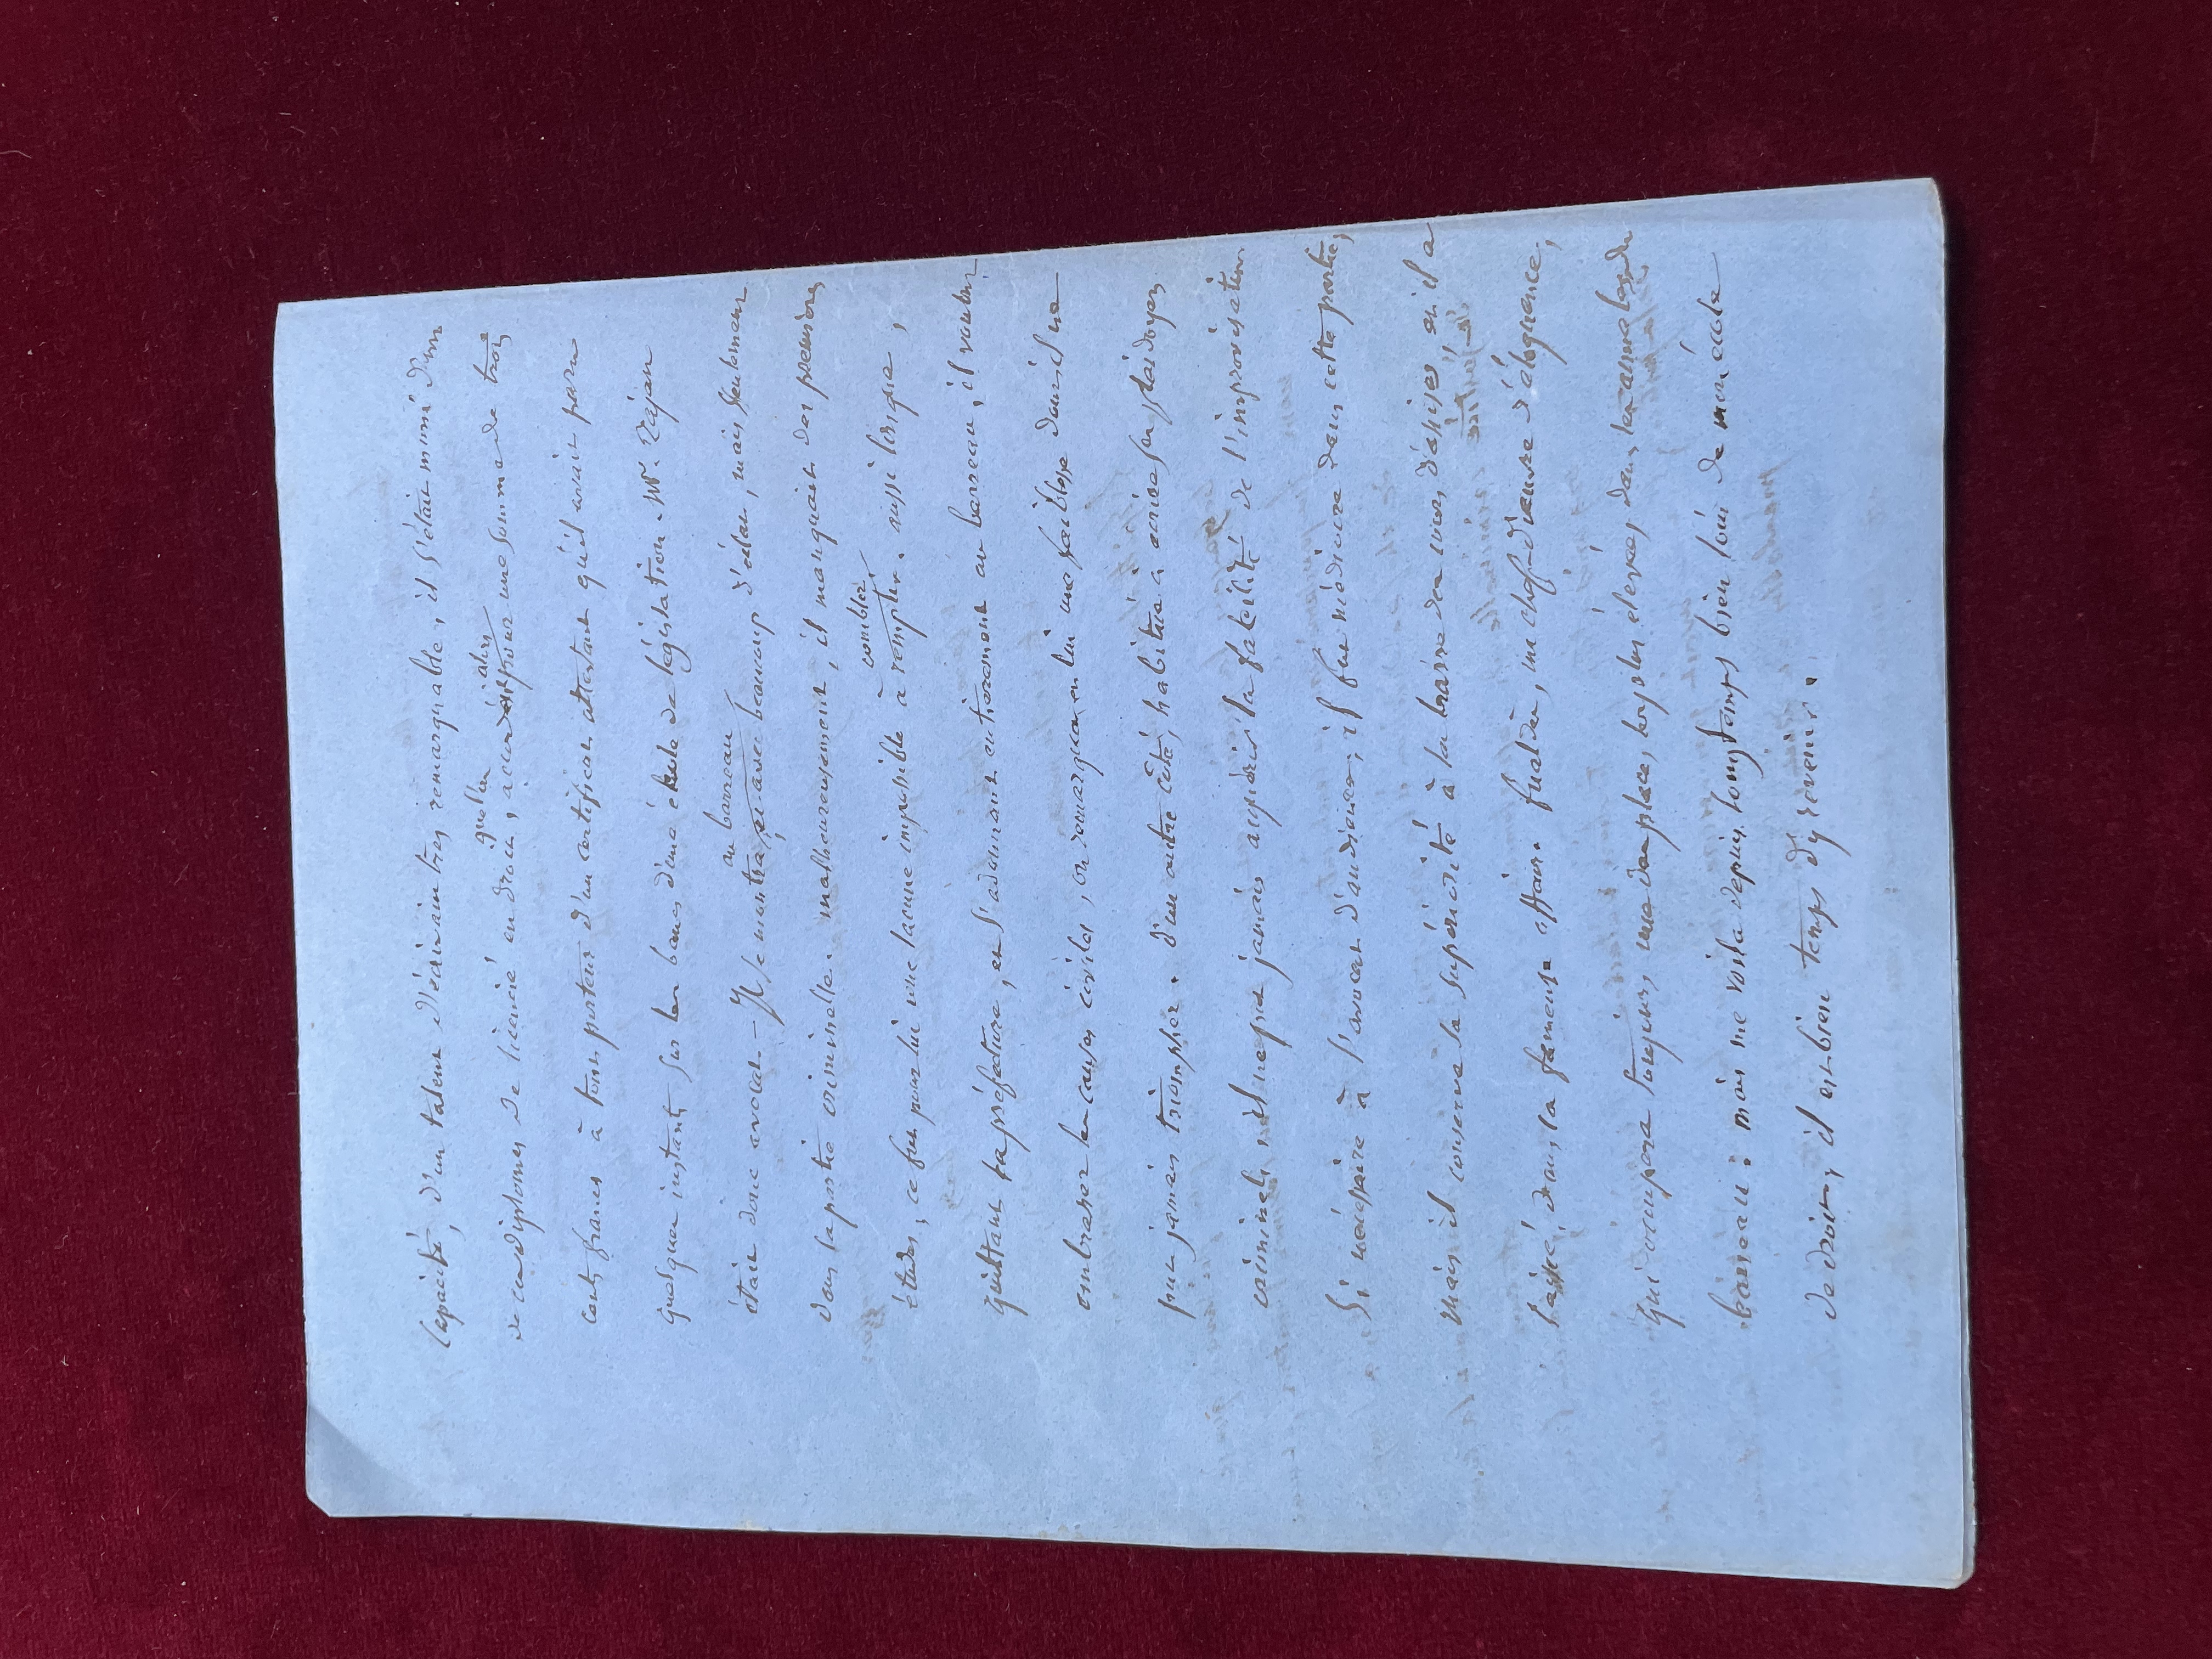 capacité, d'un talent d'écrivain très remarquable, il s'était muni d'un
de ces diplomes de licencié en droit, que l'on accordait alors pour une somme de trois
cents francs à tout porteur d'un certificat attestant qu'il avait paru
quelques instants sur les bancs d'une école de législation. Mr. Tajan
était donc avocat - Il se montra au barreau avec beaucoup d'éclat, mais seulement
dans la partie criminelle. malheureusement, il manquait des premières
études, ce fut pour lui une lacune impossible à remplir. combler aussi lorsque,
quittant la préfecture, et s'adonnant entièrement au barreau, il voulut
embrasser les causes civiles, on remarqua en lui une faiblesse dont il ne
put jamais triompher. d'un autre côté, habitué à écrire ses plaidoyers
criminels, il ne put jamais acquérir la facilité de l'improvisation
si nécessaire à l'avocat d'audience; il fut médiocre dans cette partie,
mais il conserva sa supériorité à la barre des cours d'assises, où il a
laissé, dans la fameuse affaire fualdès, un chef-d'œuvre d'éloquence,
qui occupera toujours une des places les plus élevées dans les annales du
barreau : mais me voila depuis longtemps bien loin de mon école
de droit, il est bien temps d'y revenir.